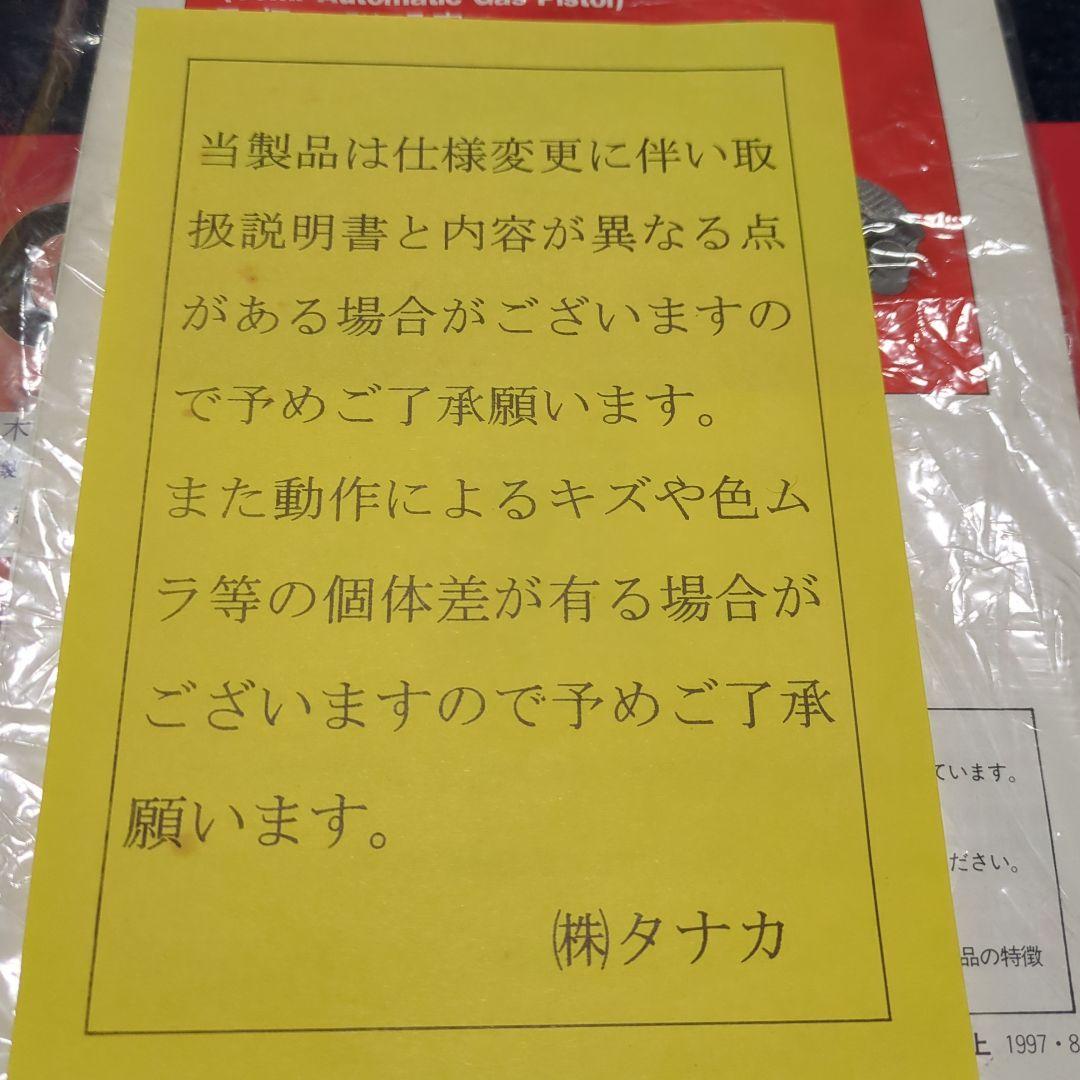 Automatic Gas Pistol)
当製品は仕様変更に伴い取
扱説明書と内容が異なる点
がある場合がございますの
で予めご了承願います。
また動作によるキズや色ム
ラ等の個体差が有る場合が
ございますので予めご了承
願います。
㈱タナカ
木
製
ています。
ださい。
品の特徴
上 1997・8